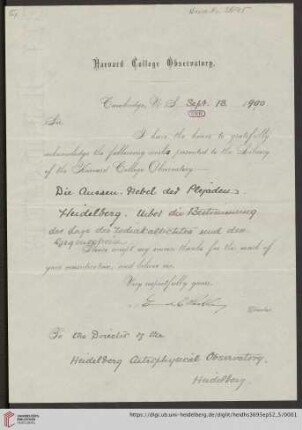 Harvard College Observatory.
Cambridge, U. S. Sept. 18. 1900
Sir,
I have the honor to gratefully
acknowledge the following works presented to the Library
of the Harvard College Observatory:
Die Aussen-Nebel der Plejaden
Heidelberg. Ueber die Bestimmung
der Lage des Zodiakallichtes und den
Gegenschein.
Please accept my sincere thanks for this mark of
your consideration, and believe me,
Very respectfully yours,
Director.
To the Director of the
Heidelberg Astrophysical Observatory,
Heidelberg.
https://digi.ub.uni-heidelberg.de/diglit/heidhs3695ep52_5/0001